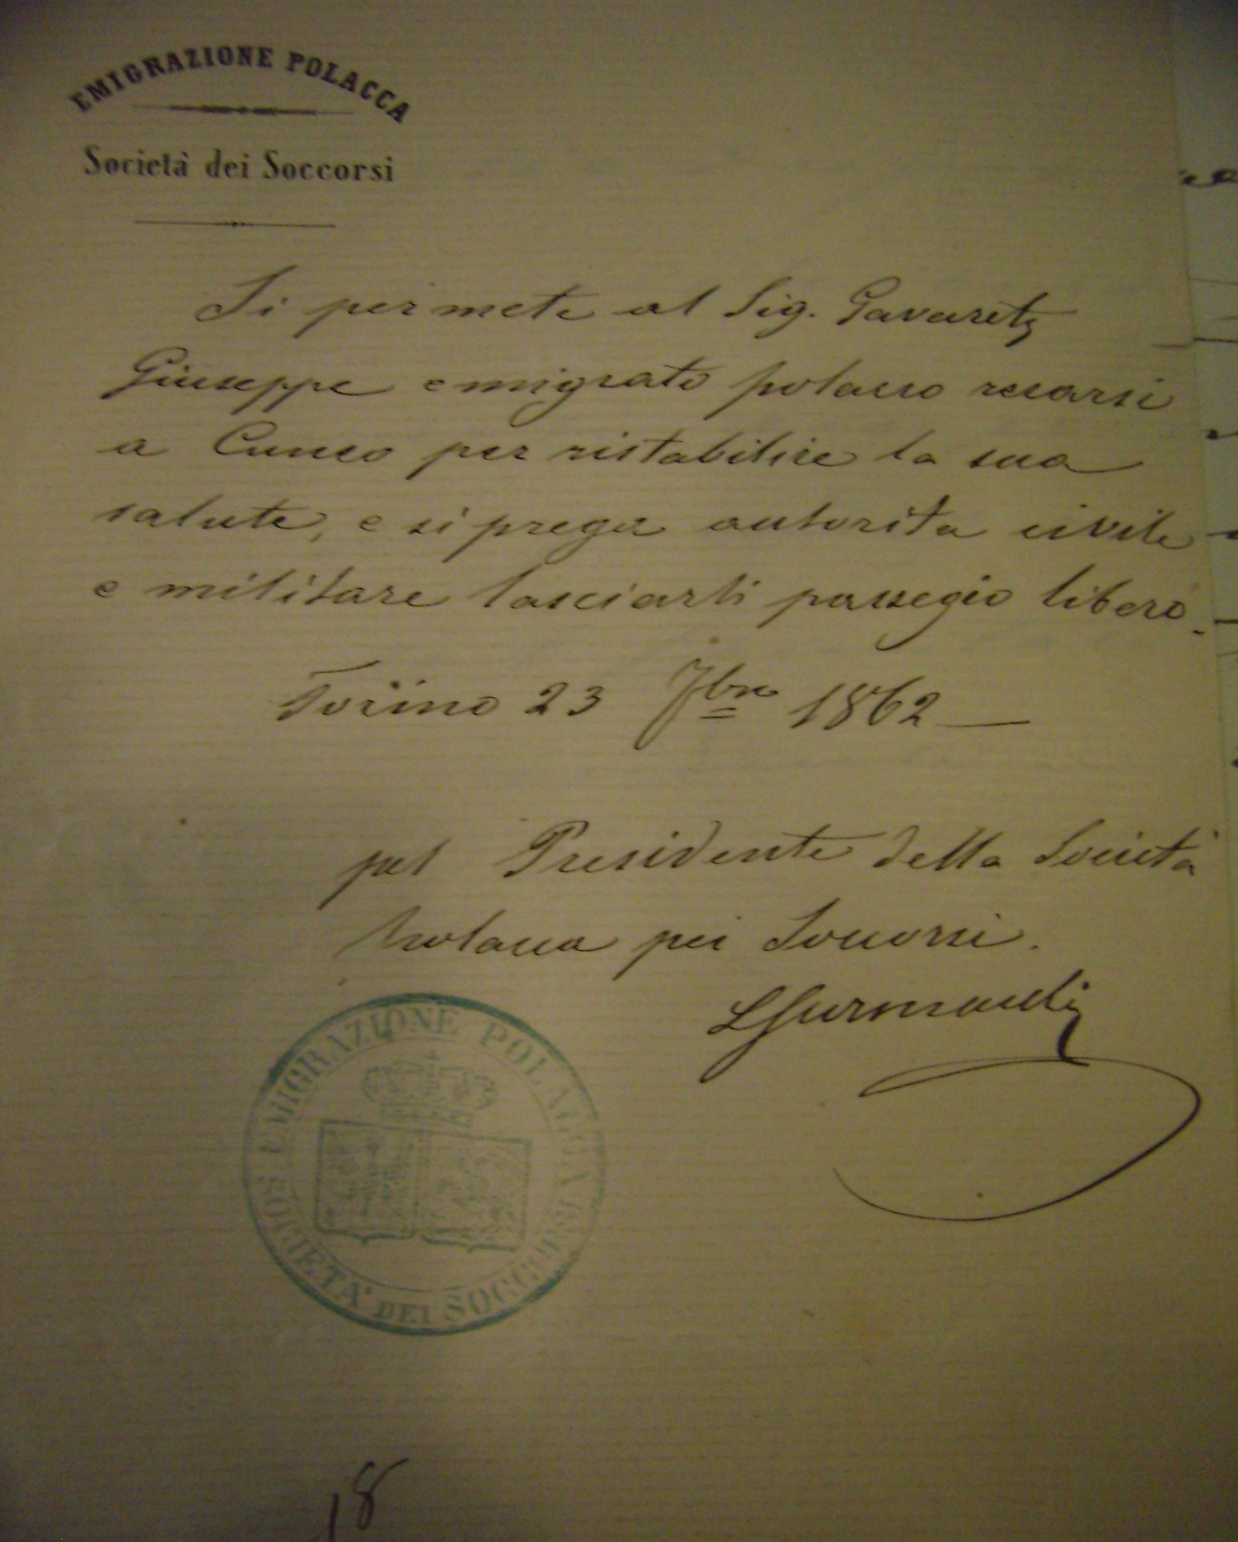 EMIGRAZIONE POLACCA
Società dei Soccorsi
Si permete al Sig. Gavaretz
Giuseppe emigrato polacco recarsi
a Cuneo per ristabilire la sua
salute, e si prega autorità civile
e militare lasciarli passegio libero.
Torino 23 7bre 1862
pel Presidente della Società
Polacca pei Soccorsi.
EMIGRAZIONE POLACCA
SOCIETA' DEI SOCCORSI
18